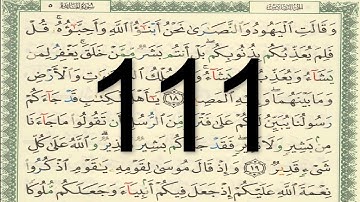 سُورَةُ المَائِدَةِ
وَقَالَتِ ٱلْيَهُودُ وَٱلنَّصَٰرَىٰ نَحْنُ أَبْنَٰٓؤُا۟ ٱللَّهِ وَأَحِبَّٰٓؤُهُۥ ۚ قُلْ
فَلِمَ يُعَذِّبُكُم بِذُنُوبِكُم ۖ بَلْ أَنتُم بَشَرٌ مِّمَّنْ خَلَقَ ۚ يَغْفِرُ لِمَن
يَشَآءُ وَيُعَذِّبُ مَن يَشَآءُ ۚ وَلِلَّهِ مُلْكُ ٱلسَّمَٰوَٰتِ وَٱلْأَرْضِ
وَمَا بَيْنَهُمَا ۖ وَإِلَيْهِ ٱلْمَصِيرُ ١٨ يَٰٓأَهْلَ ٱلْكِتَٰبِ قَدْ جَآءَكُمْ
111
رَسُولُنَا يُبَيِّنُ لَكُمْ عَلَىٰ فَتْرَةٍ مِّنَ ٱلرُّسُلِ أَن تَقُولُوا۟ مَا جَآءَنَا
مِنۢ بَشِيرٍ وَلَا نَذِيرٍ ۖ فَقَدْ جَآءَكُم بَشِيرٌ وَنَذِيرٌ ۗ وَٱللَّهُ عَلَىٰ كُلِّ
شَىْءٍ قَدِيرٌ ١٩ وَإِذْ قَالَ مُوسَىٰ لِقَوْمِهِۦ يَٰقَوْمِ ٱذْكُرُوا۟
نِعْمَةَ ٱللَّهِ عَلَيْكُمْ إِذْ جَعَلَ فِيكُمْ أَنۢبِيَآءَ وَجَعَلَكُم مُّلُوكًا